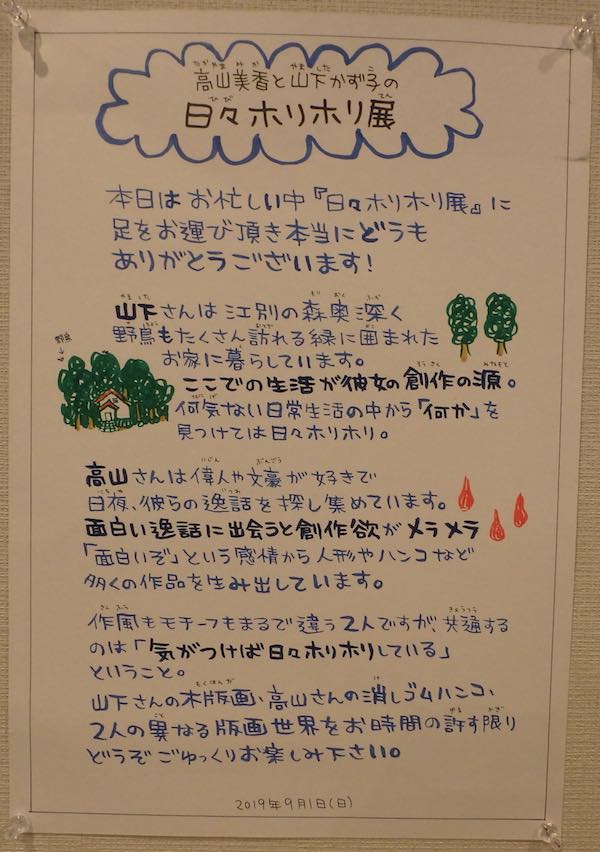 高山美香と山下かず子の
日々ホリホリ展
本日はお忙しい中『日々ホリホリ展』に
足をお運び頂き本当にどうも
ありがとうございます!
山下さんは江別の森奥深く
野鳥もたくさん訪れる緑に囲まれた
お家に暮らしています。
ここでの生活が彼女の創作の源。
何気ない日常生活の中から「何か」を
見つけては日々ホリホリ。
高山さんは偉人や文豪が好きで
日夜、彼らの逸話を探し集めています。
面白い逸話に出会うと創作欲がメラメラ
「面白いぞ」という感情から人形やハンコなど
多くの作品を生み出しています。
作風もモチーフもまるで違う2人ですが、共通する
のは「気がつけば日々ホリホリしている」
ということ。
山下さんの木版画、高山さんの消しゴムハンコ、
2人の異なる版画世界をお時間の許す限り
どうぞごゆっくりお楽しみ下さい。
2019年9月1日(日)